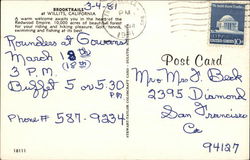 3-4-81
BROOKTRAILS
at WILLITS, CALIFORNIA
A warm welcome awaits you in the heart of the
Redwood Empire. 10,000 acres of beautiful forest
for your riding and hiking pleasure. Golf, tennis,
swimming and fishing at its best.
Rounders at Gowans
March 18
(18th)
3 P.M.
Buffet 5 or 5:30
P.M.
Phone # 587-9234
18111
PM
Post Card
Mr & Mrs J. Beck
2395 Diamond
San Francisco
Ca
94127